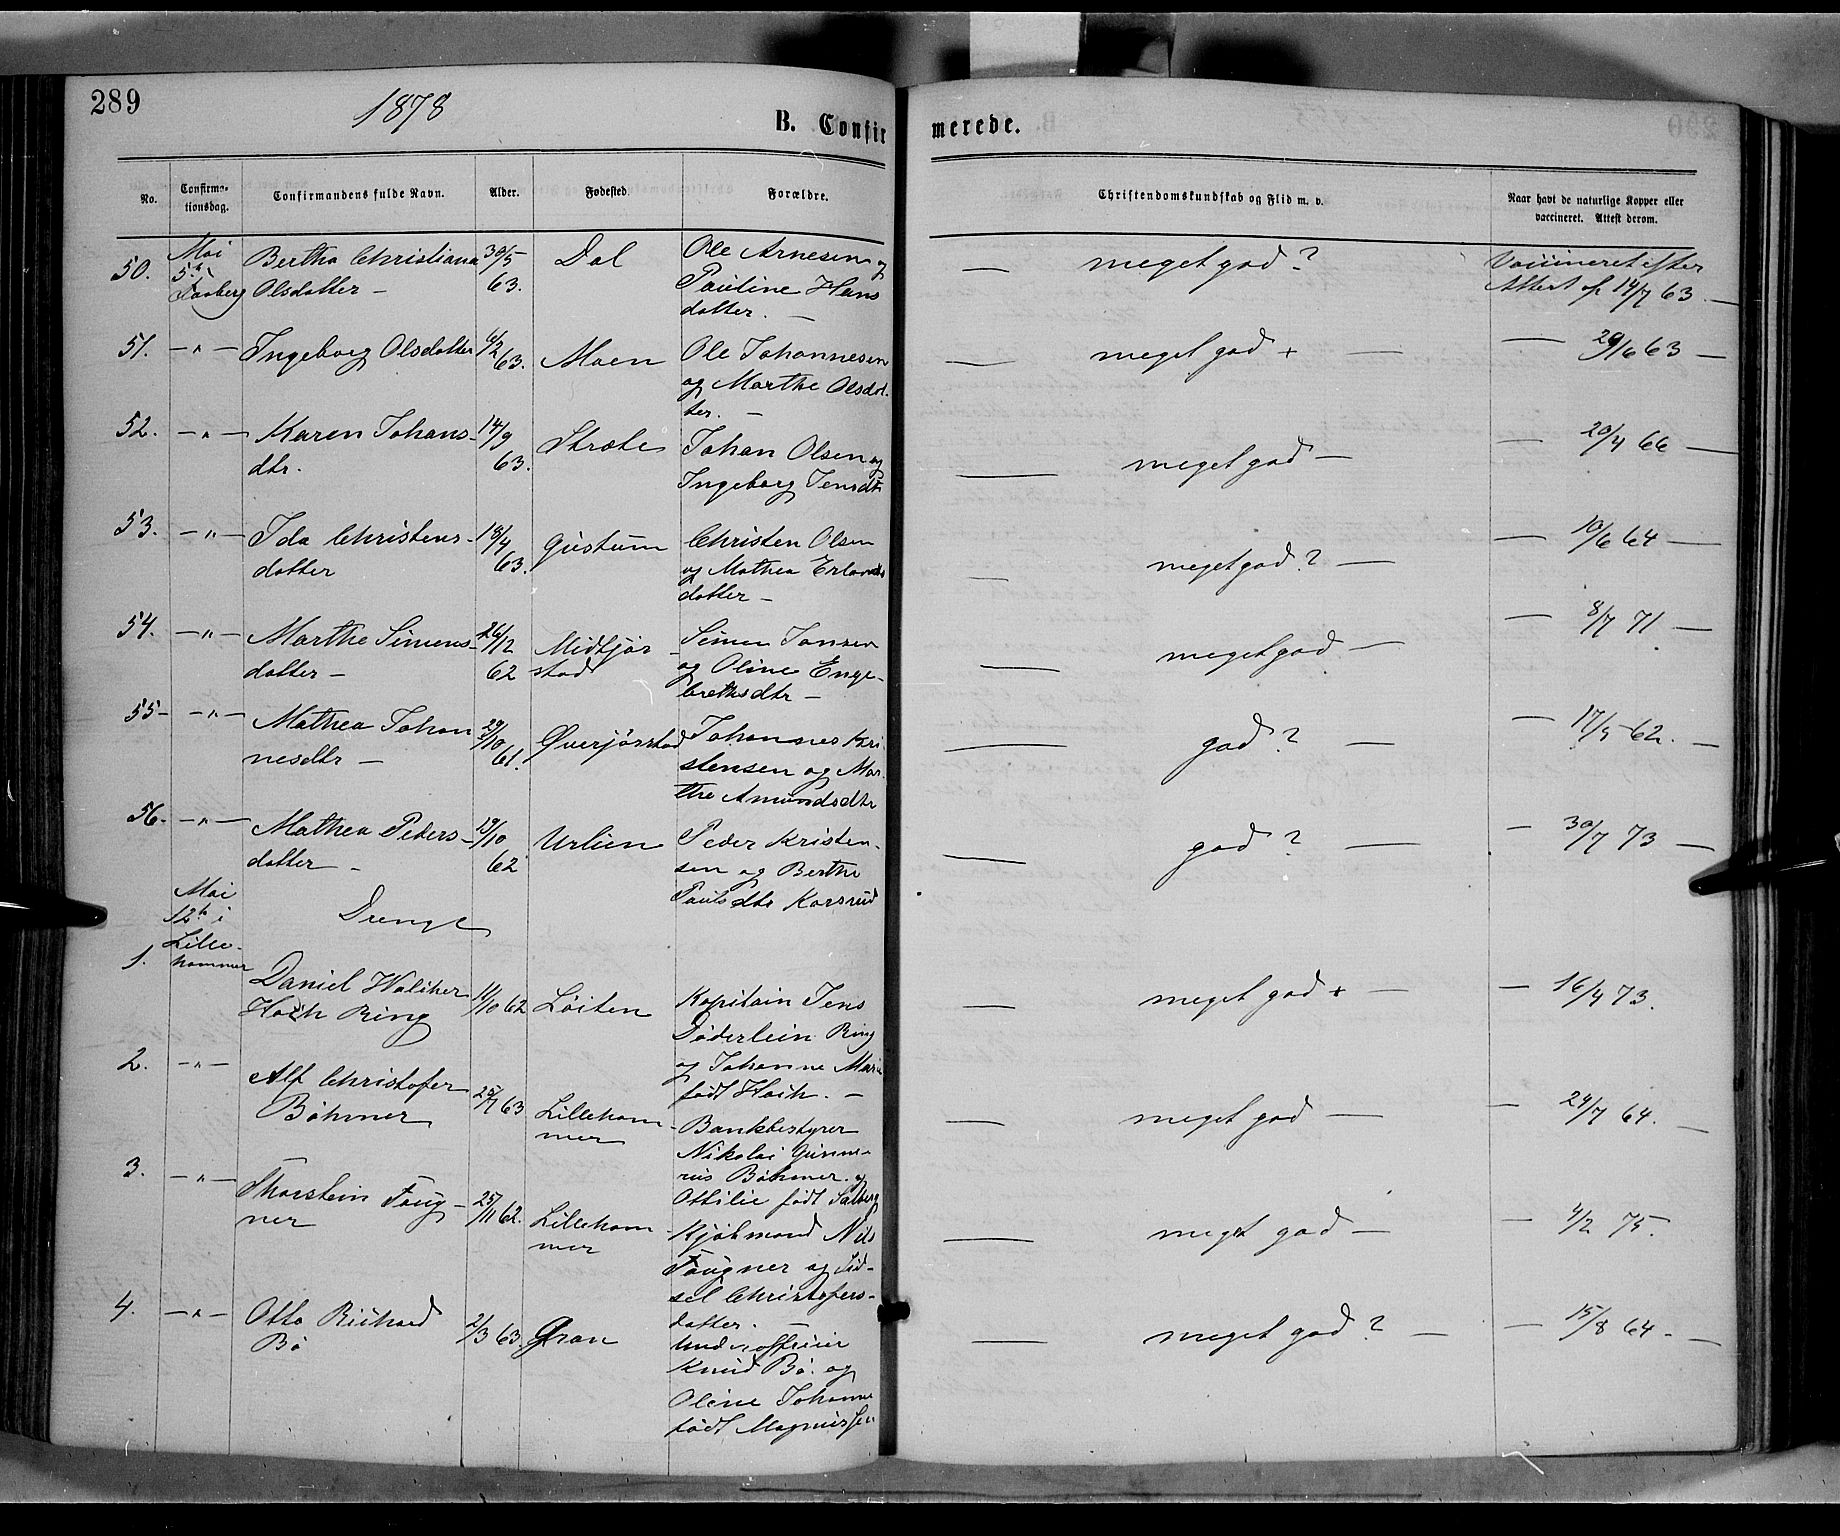 289
1878
B. Confirmerede.
No.
Confirma-
tionsdag.
Confirmandens fulde Navn.
Alder.
Fødested.
Forældre.
Christendomskundskab og Flid m. v.
Naar havt de naturlige Kopper eller
vaccineret. Attest derom.
50. Mai 5te i Faaberg Bertha Christiana Olsdatter – 30/5 63. Dal Ole Arnesen og Pauline Hansdatter. – — meget god? Vaccineret efter Attest af 14/7 63 —
51. –"– Ingeborg Olsdatter 6/2 63. Moen Ole Johannesen og Marthe Olsdatter. – — meget god + — — 29/6 63 —
52. –"– Karen Johansdtr. 14/9 63. Stræte Johan Olsen og Ingeborg Jensdtr — meget god — — 20/4 66 —
53. –"– Ida Christensdatter 18/4 63. Gustum Christen Olsen og Mathea Erlandsdatter – — meget god? — — 10/6 64 —
54. –"– Marthe Simensdatter – 26/12 62 Midtjørstad Simen Jonsen og Oline Engebrethsdtr – — meget god — — 8/7 71 —
55 –"– Mathea Johannesdtr – 29/10 61. Øverjørstad Johannes Kristensen og Marthe Amundsdtr — god? — — 17/5 62. —
56. –"– Mathea Pedersdatter – 19/10 62 Urlien Peder Kristensen og Berthe Paulsdtr Korsrud — god? — — 30/7 73 —
Mai
12te i
Lillehammer
Drenge
1. Daniel Walther Hoch Ring 11/10 62 Løiten Kapitain Jens Døderlein Ring og Johanne Marie født Hoch. – — meget god + — — 16/4 73.
2. –"– Alf Christofer Bøhmer 25/7 63 Lillehammer Bankbestyrer Nikolai Gunnerus Bøhmer og Ottilie født — meget god — — 24/7 64. —
3. –"– Thorstein Fougner 25/11 62. Lillehammer Kjøbmand Nils Fougner og Sidsel Christofersdatter. – — meget god — — 4/2 75.
4. –"– Otto Richard Bø 2/3 63 Gran Underofficier Knud Bø og Oline Johanne født Magnussen — meget god? — — 15/8 64 —